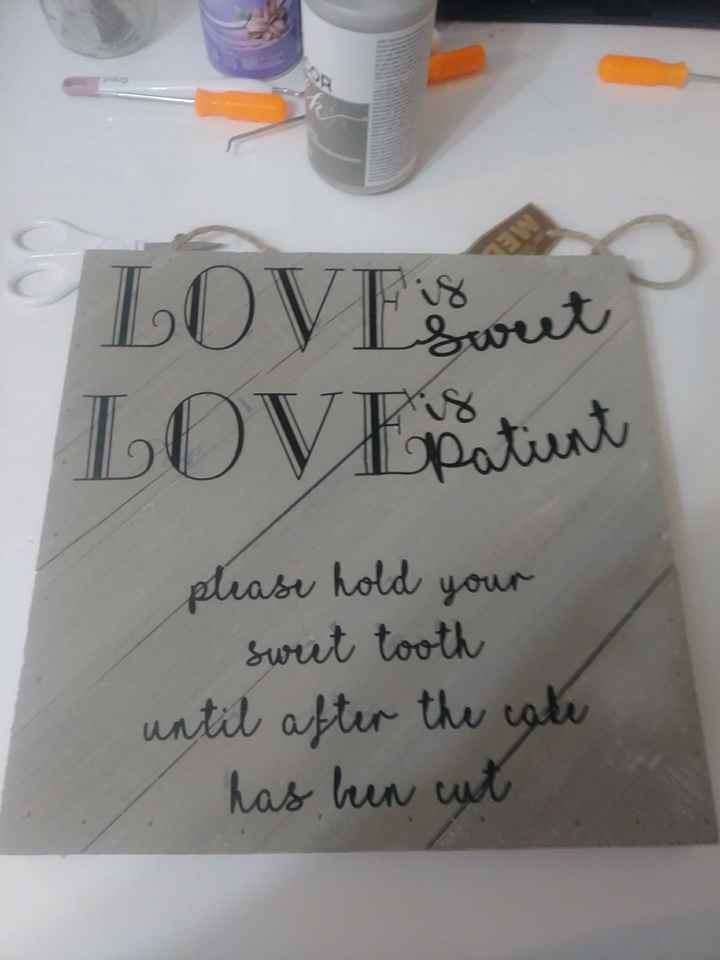 LOVE is
Sweet
LOVE is
Patient
please hold your
sweet tooth
until after the cake
has been cut